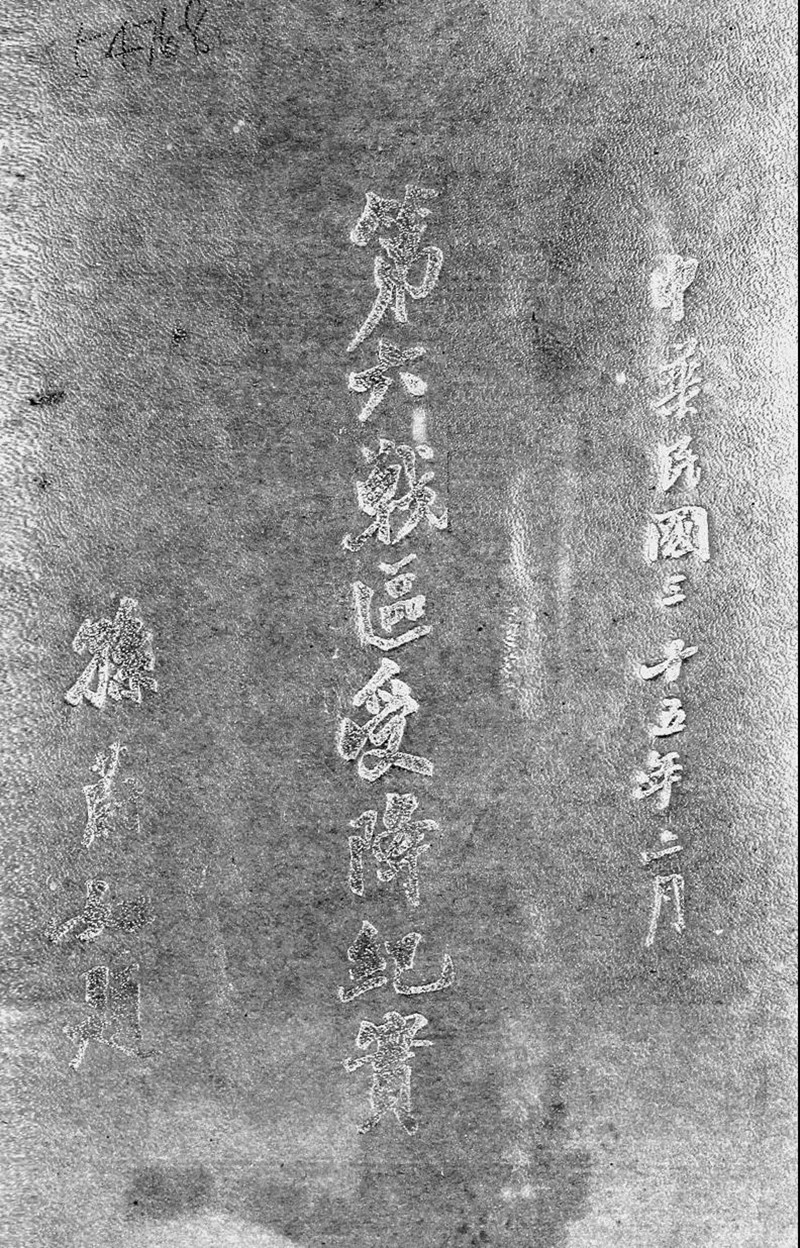 中華民國三十五年二月
第六戰區受降紀實
孫蔚如題
54768